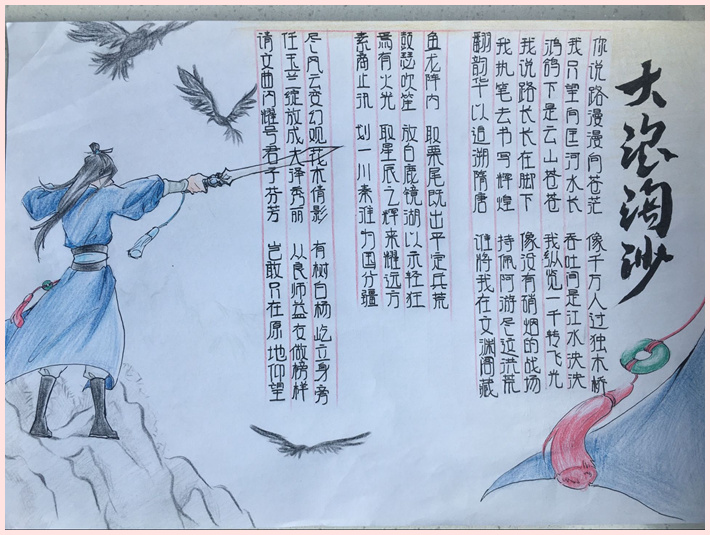 大浪淘沙
你说路漫漫向苍茫 像千万人过独木桥
我只望向匡河水长 吞吐间是江水泱泱
鸿鹄下是云山苍苍 我纵览一千转飞光
我说路长长在脚下 像没有硝烟的战场
我执笔去书写辉煌 持佩阿游尽远洪荒
翻韵华以追溯隋唐 谁将我在文渊阁藏
鱼龙阵内 取栗尾既出平定兵荒
鼓瑟吹笙 放白鹿镜湖以示轻狂
焉有火光 取星辰之辉来耀远方
素商止汛 划一川秦淮为国分疆
尽风云变幻观我木倩影 有树白杨屹立身旁
任玉兰绽放成大泽秀丽 从良师益友做榜样
请文曲闪耀号君子芬芳 岂敢只在原地仰望